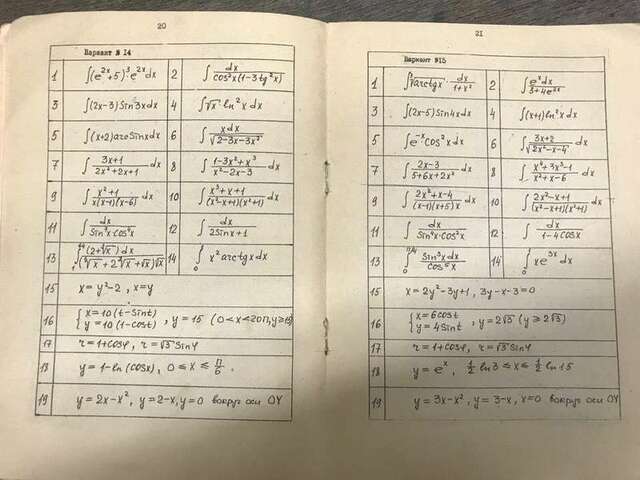 20
Вариант № 14
1 ∫(e^{2x}+5)^3·e^{2x}dx 2 ∫ dx/(cos²x(1-3tg²x))
3 ∫(2x-3)Sin3xdx 4 ∫√x·ln²xdx
5 ∫(x+2)arcSinxdx 6 ∫ xdx/√(2-3x-3x²)
7 ∫ (3x+1)/(2x²+2x+1) dx 8 ∫ (1-3x²+x³)/(x²-2x-3) dx
9 ∫ (x²+1)/(x(x-1)(x-6)) dx 10 ∫ (x³+x+1)/((x²-x+1)(x²+1)) dx
11 ∫ dx/(Sin³x·cos⁵x) 12 ∫ dx/(2Sinx+1)
13 (2+∛x)dx/((⁶√x+2∛x+√x)√x) 14 ∫ x²arctgxdx
15 x=y²-2, x=y
16 {x=10(t-Sint) y=10(1-cost), y=15 (0<x<20π, y≥15)
17 r=1+cosφ, r=√3Sinφ
18 y=1-ln(cosx), 0≤x≤
19 y=2x-x², y=2-x, y=0 вокруг оси OY
21
Вариант №15
1 arctgx·dx/(1+x²) 2 ∫ e^x dx/(3+4e^{2x})
3 ∫(2x-5)Sin4xdx 4 ∫(x+1)ln²xdx
5 ∫e^{-x}cos²xdx 6 ∫ (3x+2)/√(2x²-x-4)
7 ∫ (2x-3)/(5+6x+2x²) dx 8 ∫ (x⁴+3x³-1)/(x²+x-6) dx
9 ∫ (2x²+x-4)/((x-1)(x+5)x) dx 10 ∫ (2x²-x+1)/((x²-x+1)(x²+1)) dx
11 ∫ dx/(Sin⁴x·cos²x) 12 ∫ dx/(1-4cosx)
13 ∫₀^{π/4} Sin³xdx/cos⁵x 14 xe^{3x}dx
15 x=2y²-3y+1, 3y-x-3=0
16 {x=6cost y=4Sint, y=2√3 (y≥2√3)
17 r=1+cosφ, r=√3Sinφ
18 y=e^x, ½ln3≤x≤½ln15
19 y=3x-x², y=3-x, x=0 вокруг оси OY